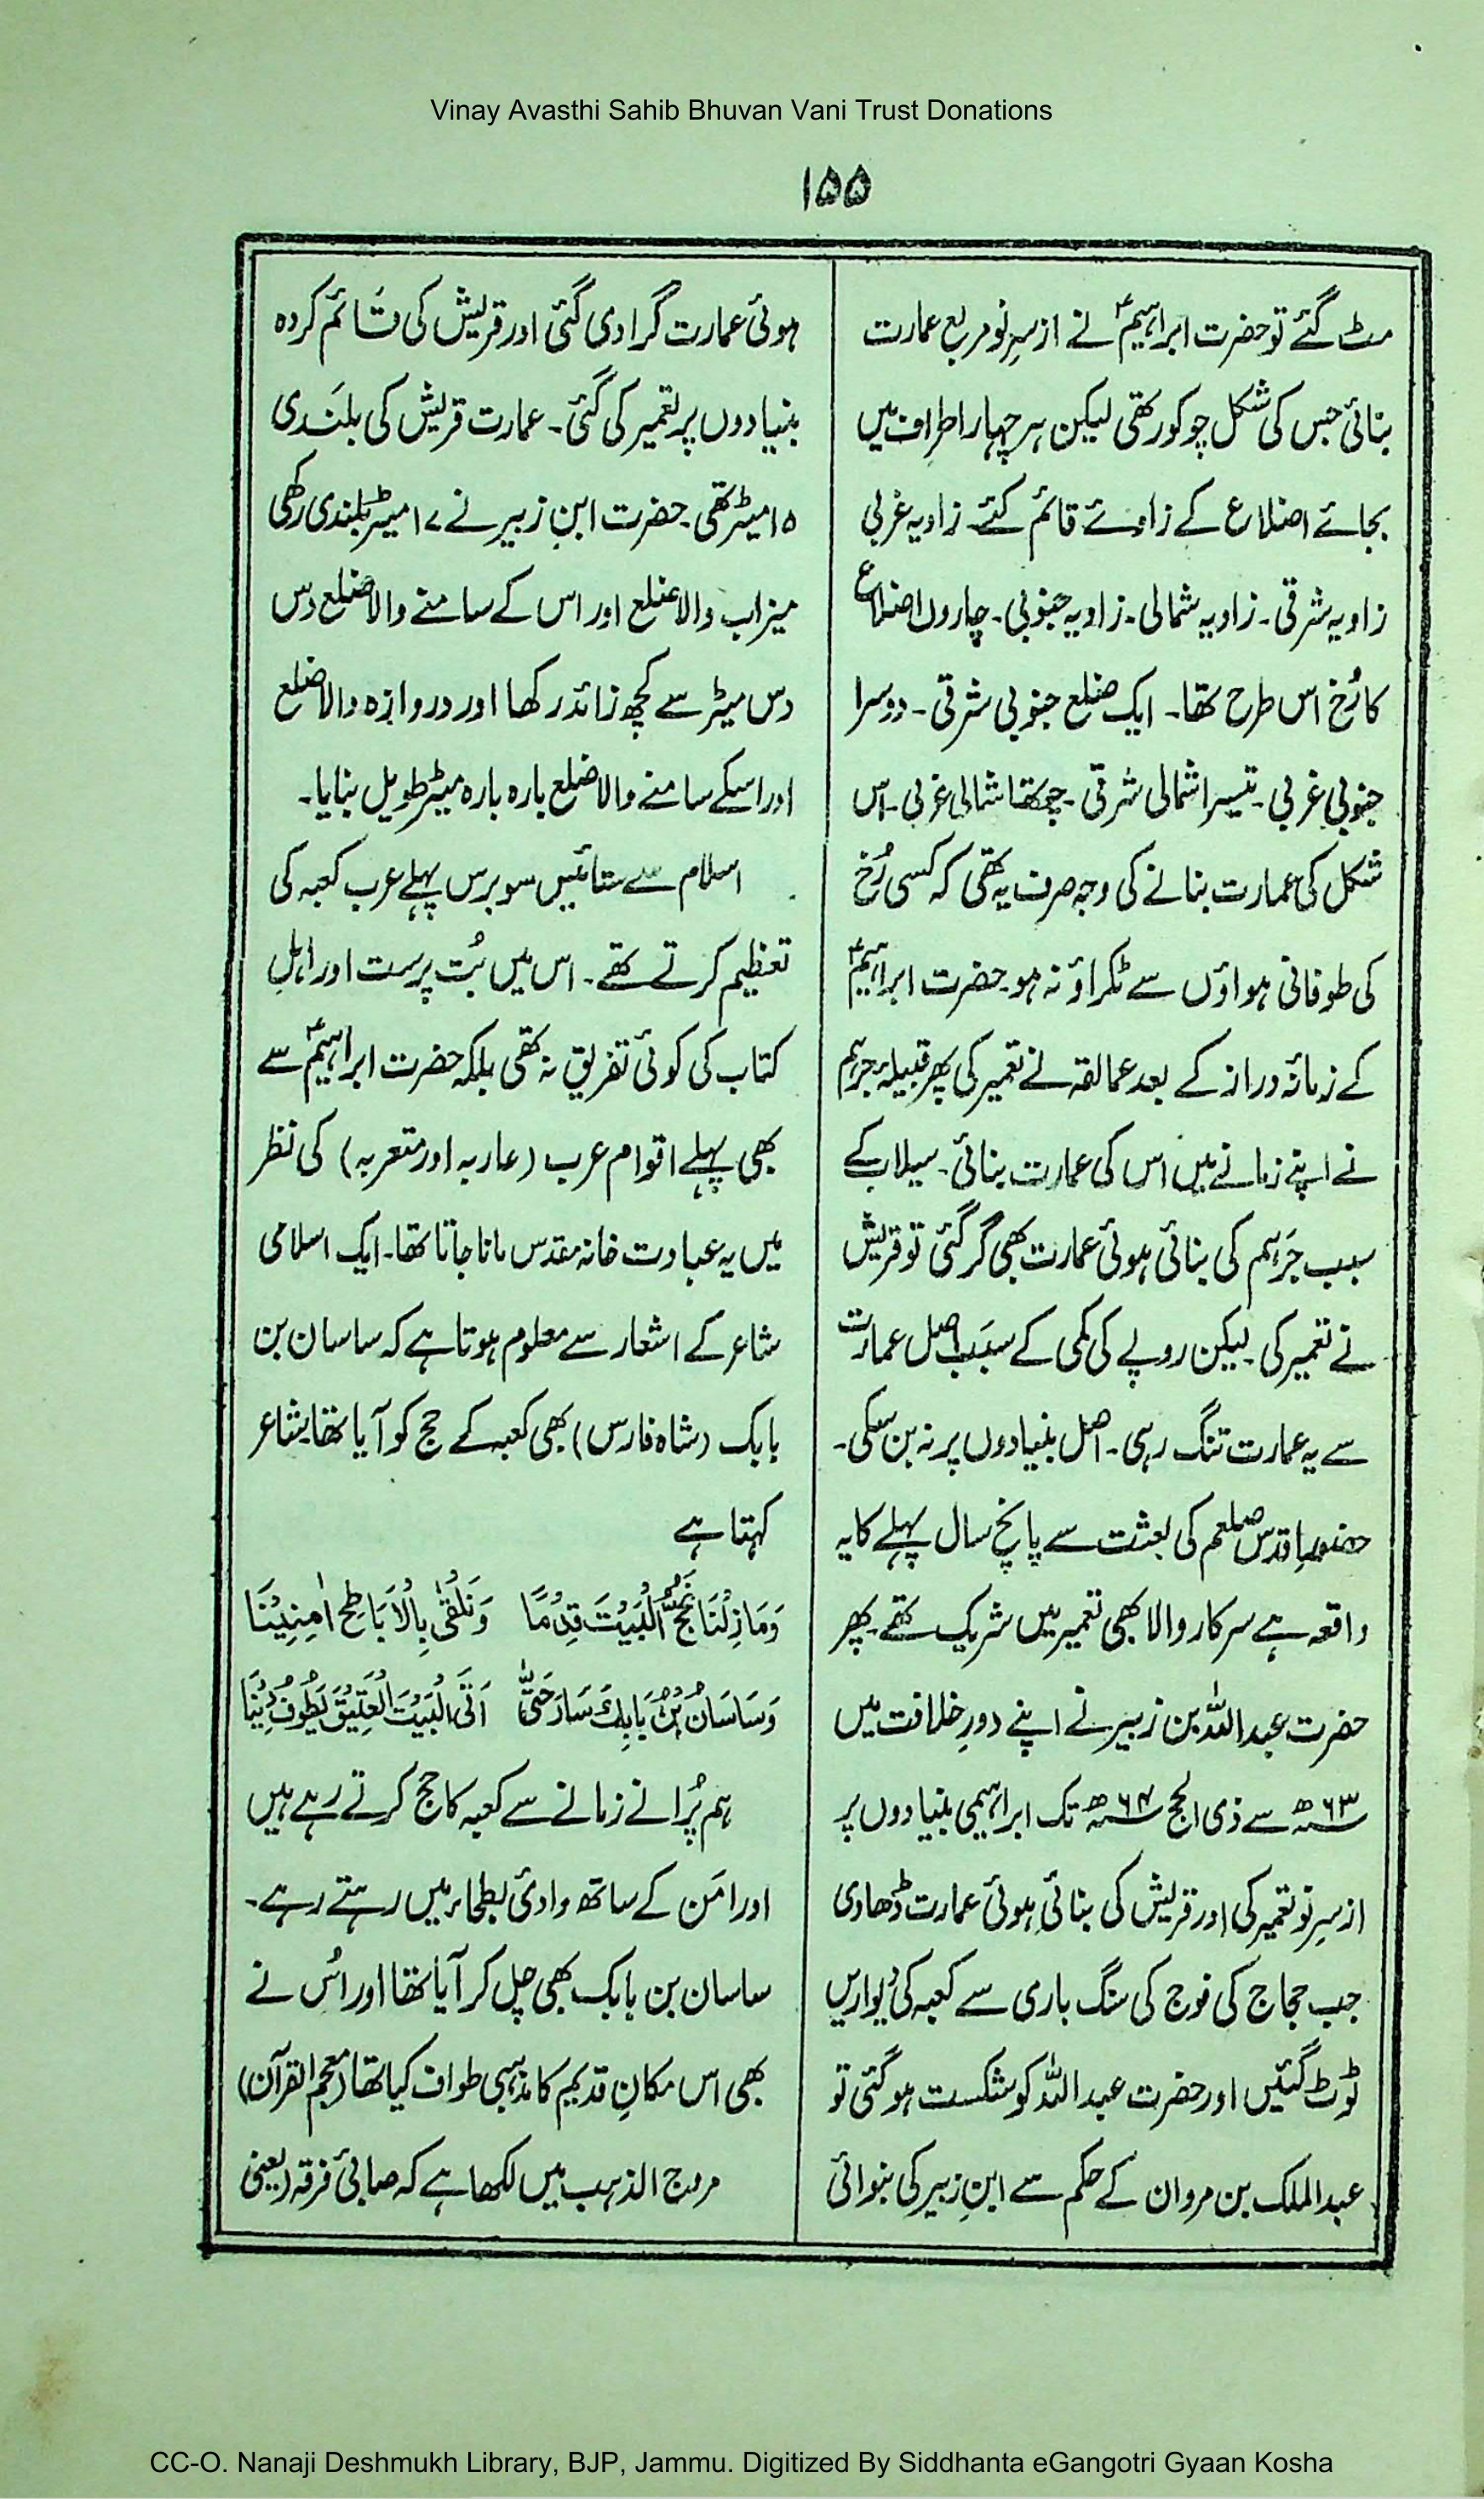 Vinay Avasthi Sahib Bhuvan Vani Trust Donations
۱۵۵
مٹ گئے تو حضرت ابراہیمؑ نے از سرِ نو مربع عمارت
بنائی جس کی شکل چوکور تھی لیکن ہر چہار اطراف میں
بجائے اضلاع کے زاویے قائم کئے۔ زاویہ غربی
زاویہ شرقی۔ زاویہ شمالی۔ زاویہ جنوبی۔ چاروں اضلاع
کا رُخ اس طرح تھا۔ ایک ضلع جنوبی شرقی۔ دوسرا
جنوبی غربی۔ تیسرا شمالی شرقی۔ چوتھا شمالی غربی۔ اس
شکل کی عمارت بنانے کی وجہ صرف یہ تھی کہ کسی رُخ
کی طوفانی ہواؤں سے ٹکراؤ نہ ہو۔ حضرت ابراہیمؑ
کے زمانۂ دراز کے بعد عمالقہ نے تعمیر کی پھر قبیلۂ جرہم
نے اپنے زمانے میں اس کی عمارت بنائی۔ سیلاب کے
سبب جَرہم کی بنائی ہوئی عمارت بھی گر گئی تو قریش
نے تعمیر کی۔ لیکن روپے کی کمی کے سبَب اصل عمارت
سے یہ عمارت تنگ رہی۔ اصل بنیادوں پر نہ بن سکی۔
حضورِ اقدس صلعم کی بعثت سے پانچ سال پہلے کا یہ
واقعہ ہے سرکار والا بھی تعمیر میں شریک تھے۔ پھر
حضرت عبداللہ بن زبیر نے اپنے دورِ خلافت میں
۶۳ھ سے ذی الحج ۶۴ھ تک ابراہیمی بنیادوں پر
از سرِ نو تعمیر کی اور قریش کی بنائی ہوئی عمارت ڈھادی
جب حجاج کی فوج کی سنگ باری سے کعبہ کی دیواریں
ٹوٹ گئیں اور حضرت عبداللہ کو شکست ہو گئی تو
عبدالملک بن مروان کے حکم سے ابنِ زبیر کی بنوائی
ہوئی عمارت گرادی گئی اور قریش کی قائم کردہ
بنیادوں پر تعمیر کی گئی۔ عمارت قریش کی بلَندی
۱۵ میٹر تھی۔ حضرت ابن زبیر نے ۱۷ میٹر بلندی رکھی
میزاب والا ضلع اور اس کے سامنے والا ضلع دس
دس میٹر سے کچھ زائد رکھا اور دروازہ والا ضلع
اور اسکے سامنے والا ضلع بارہ بارہ میٹر طویل بنایا۔
اسلام سے ستائیس سو برس پہلے عرب کعبہ کی
تعظیم کرتے تھے۔ اس میں بُت پرست اور اہلِ
کتاب کی کوئی تفریق نہ تھی بلکہ حضرت ابراہیمؑ سے
بھی پہلے اقوام عرب (عاربہ اور متعربہ) کی نظر
میں یہ عبادت خانہ مقدس مانا جاتا تھا۔ ایک اسلامی
شاعر کے اشعار سے معلوم ہوتا ہے کہ ساسان بن
بابک (شاہ فارس) بھی کعبہ کے حج کو آیا تھا۔ شاعر
کہتا ہے
وَمَا زِلْنَا نَحُجُّ الْبَيْتَ قِدْمًا وَنَلْقٰى بِالْاَبَاطِحِ اٰمِنِيْنَا
وَسَاسَانُ بْنُ بَابِكَ سَارَ حَتّٰى اَتَى الْبَيْتَ الْعَتِيْقَ يَطُوْفُ دِيْنَا
ہم پُرانے زمانے سے کعبہ کا حج کرتے رہے ہیں
اور امَن کے ساتھ وادئ بطحاء میں رہتے رہے۔
ساسان بن بابک بھی چل کر آیا تھا اور اُس نے
بھی اس مکانِ قدیم کا مذہبی طواف کیا تھا (معجم القرآن)
مروج الذہب میں لکھا ہے کہ صابئی فرقہ (یعنی
CC-O. Nanaji Deshmukh Library, BJP, Jammu. Digitized By Siddhanta eGangotri Gyaan Kosha